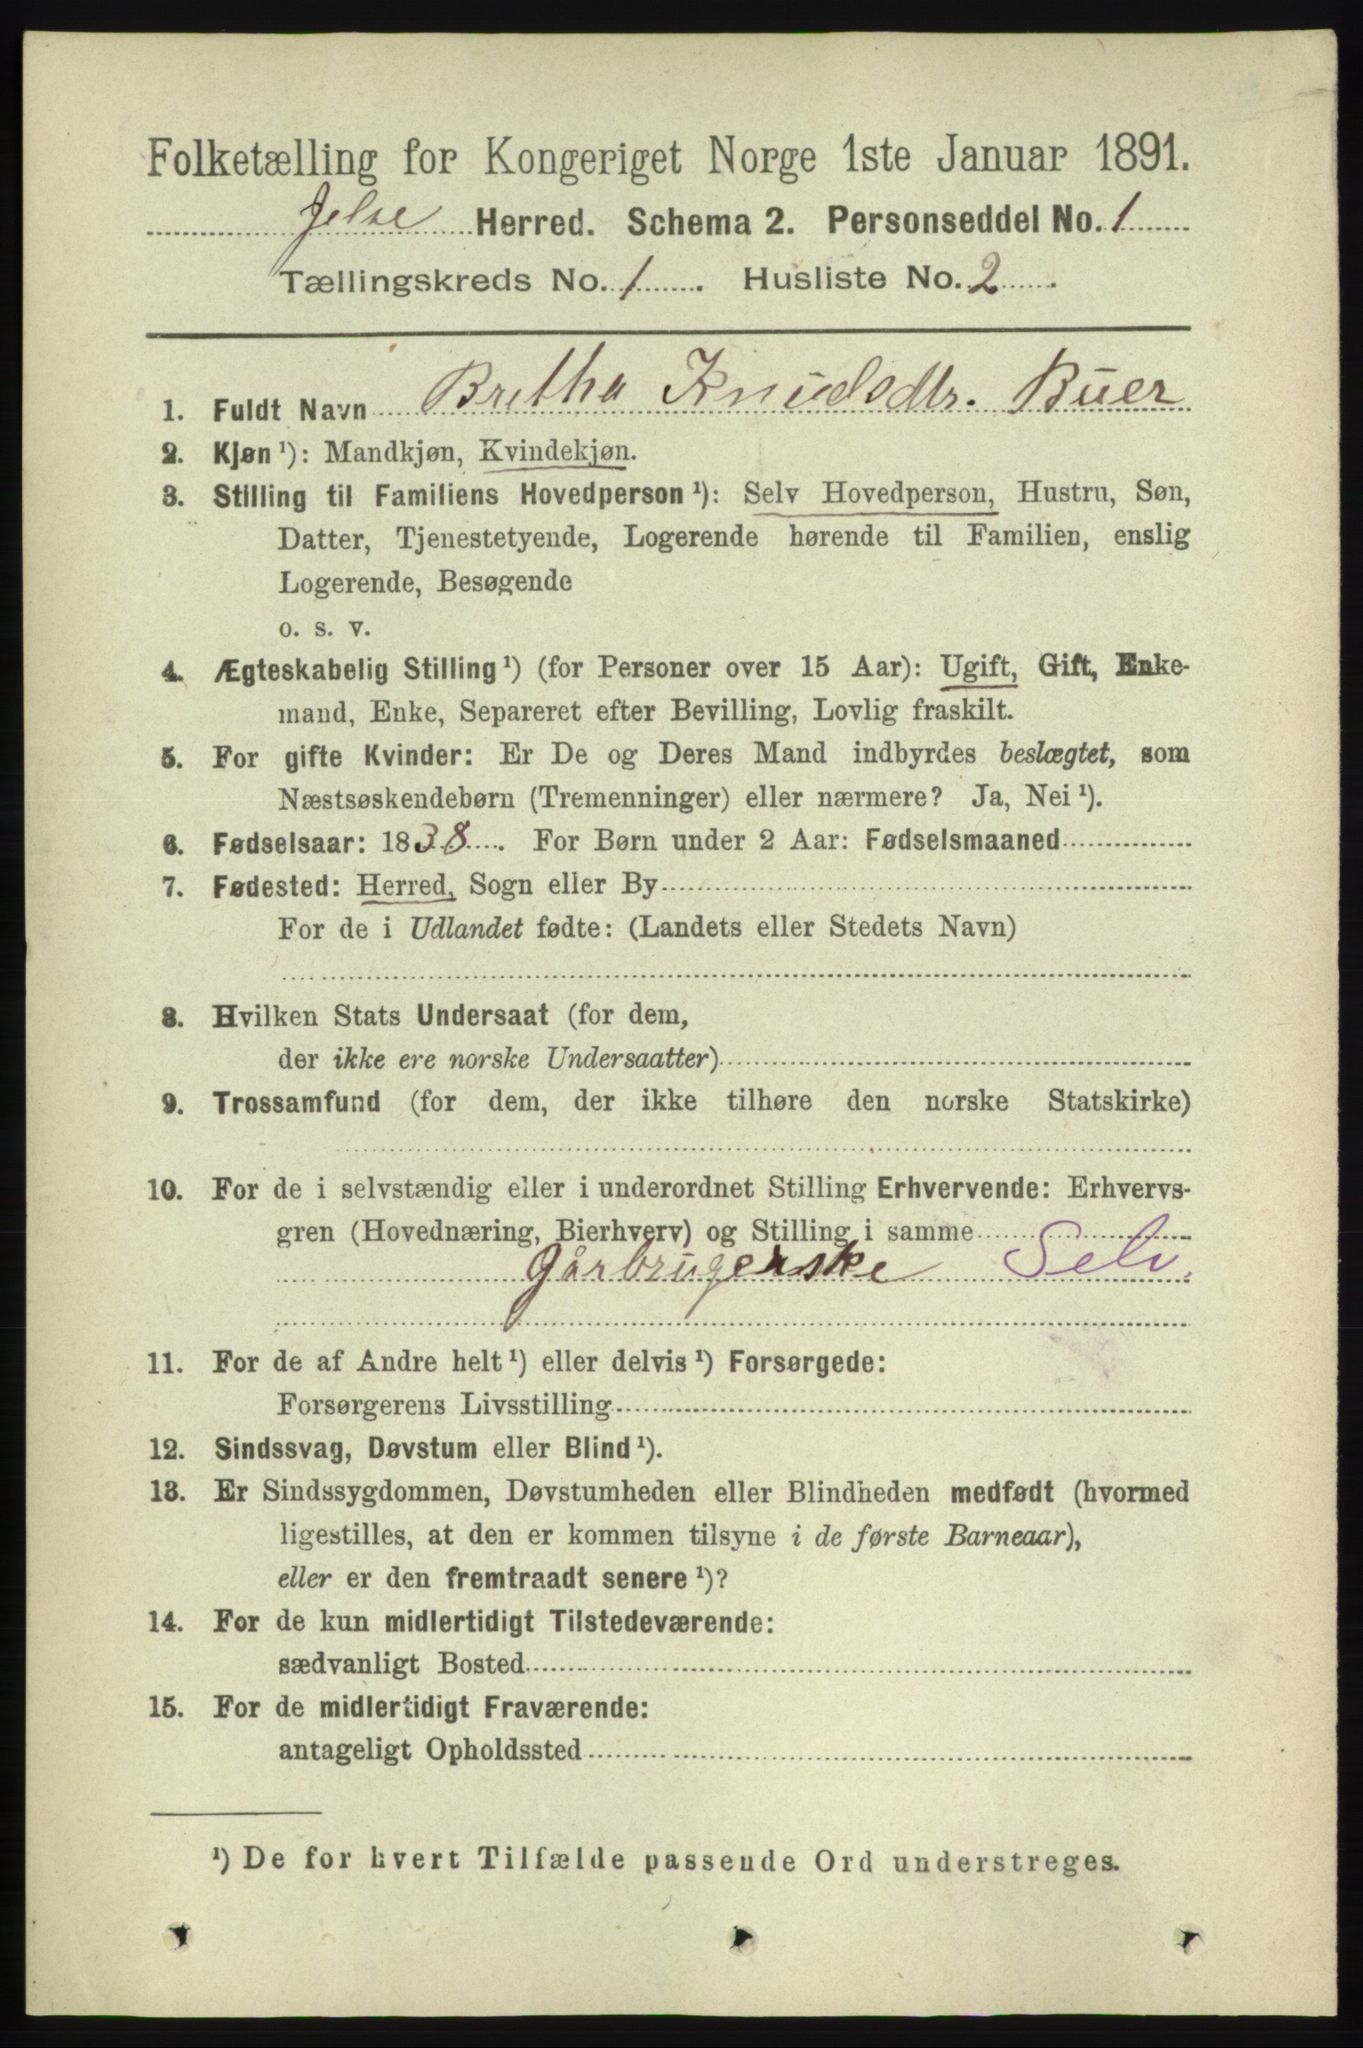 Folketælling for Kongeriget Norge 1ste Januar 1891.
Jelse Herred. Schema 2. Personseddel No. 1
Tællingskreds No. 1. Husliste No. 2.
1. Fuldt Navn Britha Knudsdtr. Buer
2. Kjøn¹): Mandkjøn, Kvindekjøn.
3. Stilling til Familiens Hovedperson¹): Selv Hovedperson, Hustru, Søn,
Datter, Tjenestetyende, Logerende hørende til Familien, enslig
Logerende, Besøgende
o. s. v.
4. Ægteskabelig Stilling¹) (for Personer over 15 Aar): Ugift, Gift, Enke-
mand, Enke, Separeret efter Bevilling, Lovlig fraskilt.
5. For gifte Kvinder: Er De og Deres Mand indbyrdes beslægtet, som
Næstsøskendebørn (Tremenninger) eller nærmere? Ja, Nei¹).
6. Fødselsaar: 1838. For Børn under 2 Aar: Fødselsmaaned
7. Fødested: Herred, Sogn eller By
For de i Udlandet fødte: (Landets eller Stedets Navn)
8. Hvilken Stats Undersaat (for dem,
der ikke ere norske Undersaatter)
9. Trossamfund (for dem, der ikke tilhøre den norske Statskirke)
10. For de i selvstændig eller i underordnet Stilling Erhvervende: Erhvervs-
gren (Hovednæring, Bierhverv) og Stilling i samme
Gårbrugerske Selv.
11. For de af Andre helt¹) eller delvis¹) Forsørgede:
Forsørgerens Livsstilling
12. Sindssvag, Døvstum eller Blind¹).
13. Er Sindssygdommen, Døvstumheden eller Blindheden medfødt (hvormed
ligestilles, at den er kommen tilsyne i de første Barneaar),
eller er den fremtraadt senere¹)?
14. For de kun midlertidigt Tilstedeværende:
sædvanligt Bosted
15. For de midlertidigt Fraværende:
antageligt Opholdssted
¹) De for hvert Tilfælde passende Ord understreges.